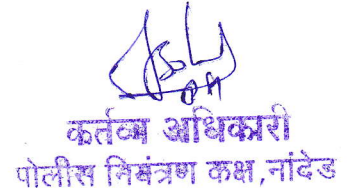 कर्तव्य अधिकारी
पोलीस नियंत्रण कक्ष,नांदेड